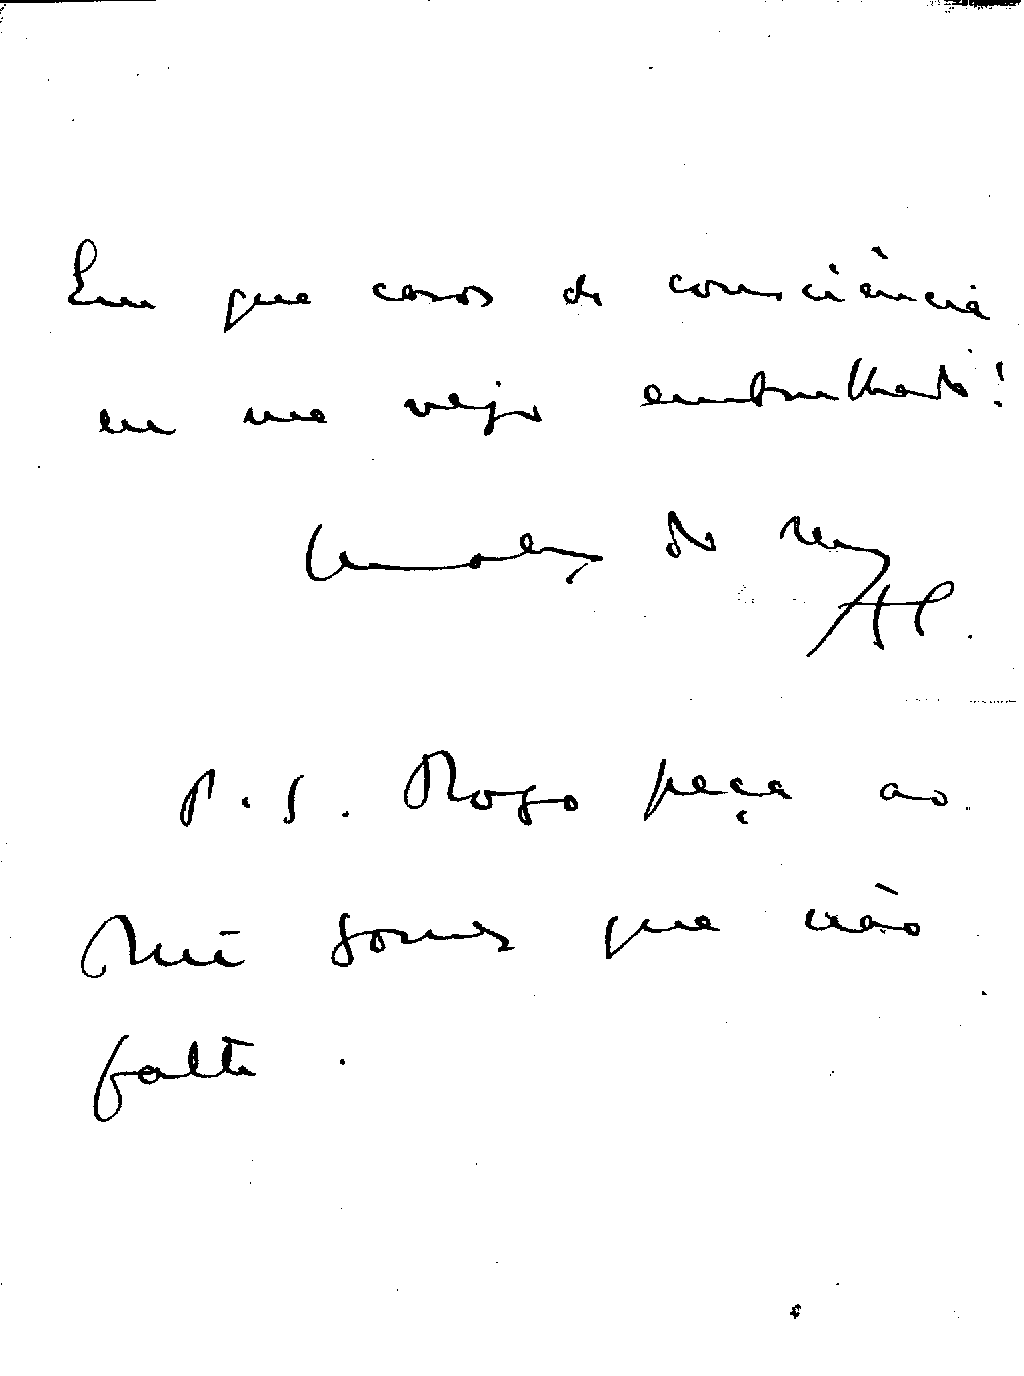 Em que casos de consciência
eu me vejo embrulhado!
do
P.S. Rogo peça ao
Rui Gomes que não
falte.